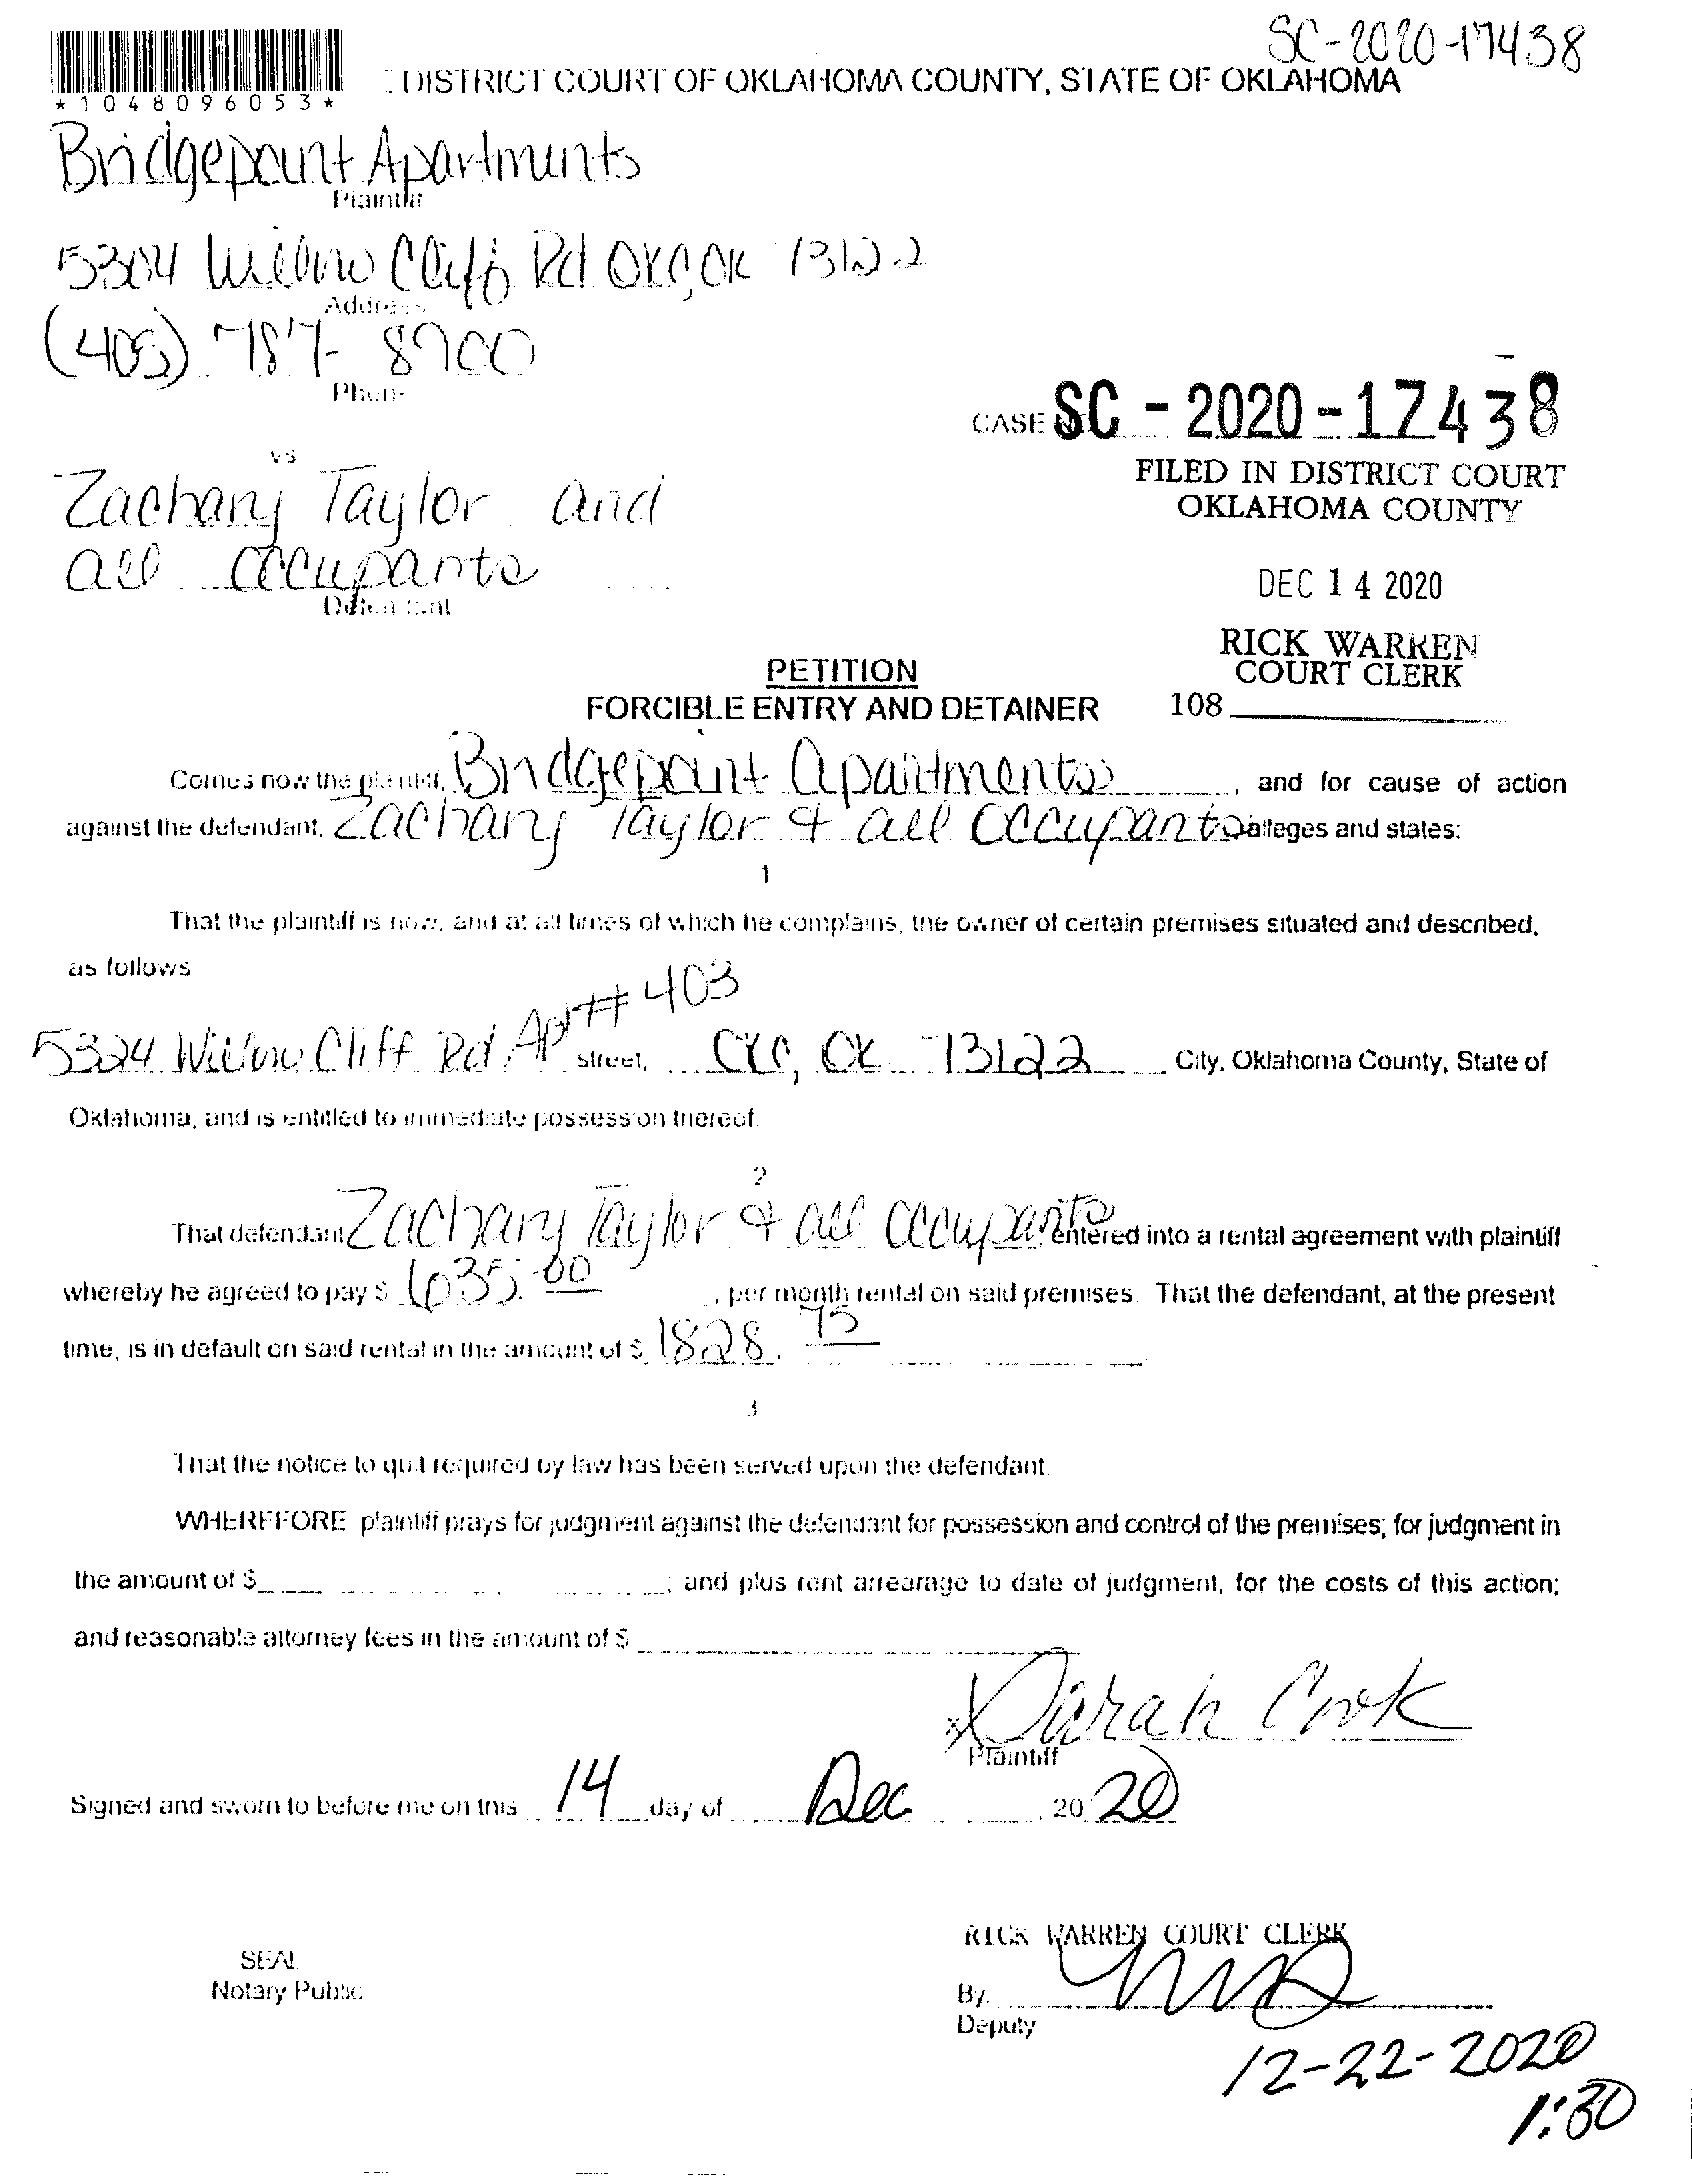 SC-2020-17438
*1048096053*
DISTRICT COURT OF OKLAHOMA COUNTY, STATE OF OKLAHOMA
Bridgepoint Apartments
Plaintiff
5304 Willow Cliff Rd OKC, OK 73122
Address
(405) 787-8900
Phone
CASE SC - 2020 - 17438
FILED IN DISTRICT COURT
OKLAHOMA COUNTY
vs
Zachary Taylor and
all occupants
Defendant
DEC 14 2020
RICK WARREN
COURT CLERK
108
PETITION
FORCIBLE ENTRY AND DETAINER
Comes now the plaintiff, Bridgepoint Apartments, and for cause of action
against the defendant, Zachary Taylor & all occupants alleges and states:
1
That the plaintiff is now, and at all times of which he complains, the owner of certain premises situated and described,
as follows
5324 Willow Cliff Rd Apt # 403 street, OKC, OK 73122 City, Oklahoma County, State of
Oklahoma, and is entitled to immediate possession thereof.
2
That defendant Zachary Taylor & all occupants entered into a rental agreement with plaintiff
whereby he agreed to pay $ 635.00, per month rental on said premises. That the defendant, at the present
time, is in default on said rental in the amount of $ 1828.75
3
That the notice to quit required by law has been served upon the defendant.
WHEREFORE plaintiff prays for judgment against the defendant for possession and control of the premises; for judgment in
the amount of $ ; and plus rent arrearage to date of judgment, for the costs of this action;
and reasonable attorney fees in the amount of $
x Sarah Cook
Plaintiff
Signed and sworn to before me on this 14 day of Dec, 2020
RICK WARREN COURT CLERK
SEAL
Notary Public
By
Deputy
12-22-2020
1:30